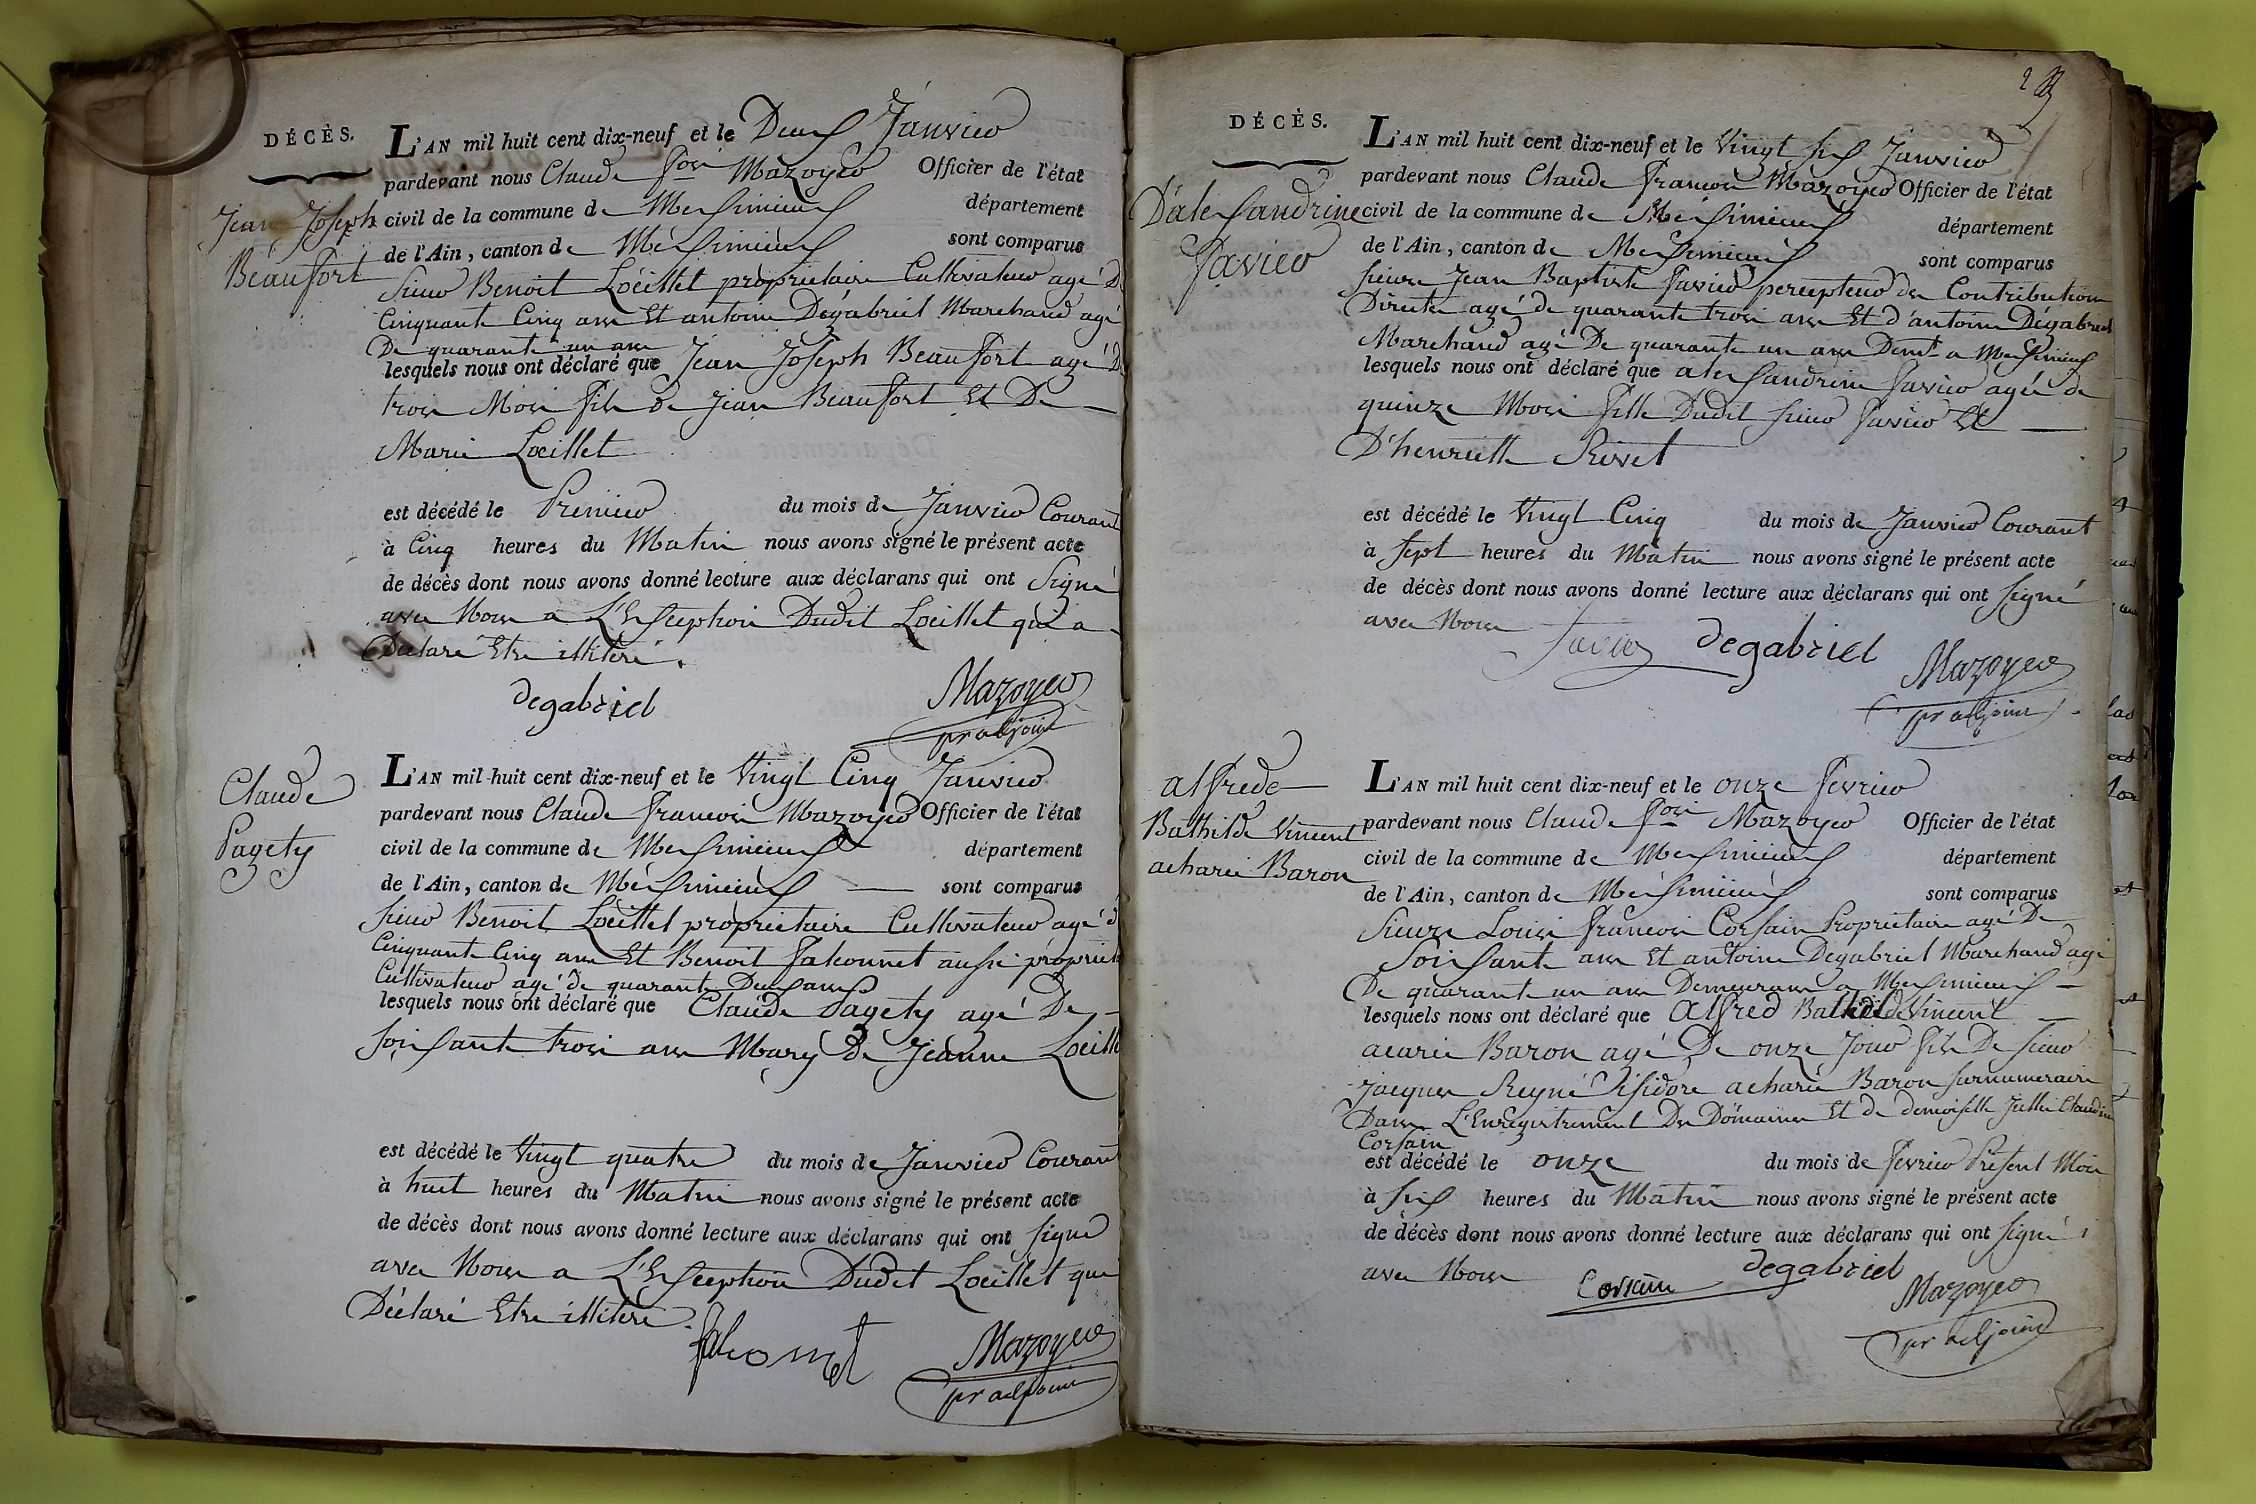 DÉCÈS.
Jean Joseph
Beaufort
L'AN mil huit cent dix-neuf et le Deux Janvier
pardevant nous Claude fois Mazoyer Officier de l'état
civil de la commune de Meximieux département
de l'Ain, canton de Méximieux sont comparus
Sieur Benoit Loëillet propriétaire Cultivateur agé De
Cinquante Cinq ans Et antoine Dégabriel Marchand agé
De quarante un ans
lesquels nous ont déclaré que Jean Joseph Beaufort agé De
trois Mois fils de Jean Beaufort Et De
Marie Loeillet
est décédé le Premier du mois de Janvier Courant
à Cinq heures du Matin nous avons signé le présent acte
de décès dont nous avons donné lecture aux déclarans qui ont Signé
avec Nous a L'Exception Dudit Loeillet qui a
Déclaré Etre illiteré.
degabriel Mazoyer
pr adjoint
Claude
Pagety
L'AN mil huit cent dix-neuf et le Vingt Cinq Janvier
pardevant nous Claude francois Mazoyer Officier de l'état
civil de la commune de Meximieux département
de l'Ain, canton de Méximieux sont comparus
Sieur Benoit Loëillet propriétaire Cultivateur agé d
Cinquante Cinq ans Et Benoit Falconnet aussi propriét
Cultivateur agé de quarante Deux ans
lesquels nous ont déclaré que Claude Pagety agé De
Soixante trois ans Mary de Jeanne Loeille
est décédé le Vingt quatre du mois de Janvier Courant
à huit heures du Matin nous avons signé le présent acte
de décès dont nous avons donné lecture aux déclarans qui ont Signé
avec Nous a L'Exception Dudit Loeillet qui
Déclaré Etre illiteré.
falconnet Mazoyer
pr adjoint
DÉCÈS.
D'alexandrine
Favier
L'AN mil huit cent dix-neuf et le Vingt six Janvier
pardevant nous Claude francois Mazoyer Officier de l'état
civil de la commune de Méximieux département
de l'Ain, canton de Meximieux sont comparus
Sieurs Jean Baptiste Favier percepteur des Contributions
Directes agé de quarante trois ans Et d'antoine Dégabriel
Marchand agé De quarante un ans Demt a Meximieux
lesquels nous ont déclaré que alexandrine Favier agée de
quinze Mois fille Dudit Sieur Favier Et
D'henriette Rivet
est décédé le Vingt Cinq du mois de Janvier Courant
à Sept heures du Matin nous avons signé le présent acte
de décès dont nous avons donné lecture aux déclarans qui ont Signé
avec Nous
Favier degabriel Mazoyer
pr adjoint
alfrede
Bathilde Vincent
acharie Baron
L'AN mil huit cent dix-neuf et le onze fevrier
pardevant nous Claude fois Mazoyer Officier de l'état
civil de la commune de Meximieux département
de l'Ain, canton de Méximieux sont comparus
Sieurs Louis francois Corsain Propriétaire agé De
Soixante ans Et antoine Degabriel Marchand agé
De quarante un ans Demeurans a Meximieux
lesquels nous ont déclaré que Alfred Bathilde Vincent
acarie Baron agé De onze Jour fils De Sieur
Jacques Reyné Isidore acharie Baron Surnumeraire
Dans L'Enregistrement Des Domaines Et de demoiselle Julie Claudine
Corsain
est décédé le onze du mois de fevrier Présent Mois
à Six heures du Matin nous avons signé le présent acte
de décès dont nous avons donné lecture aux déclarans qui ont Signé
avec Nous
Corsain degabriel Mazoyer
pr adjoint